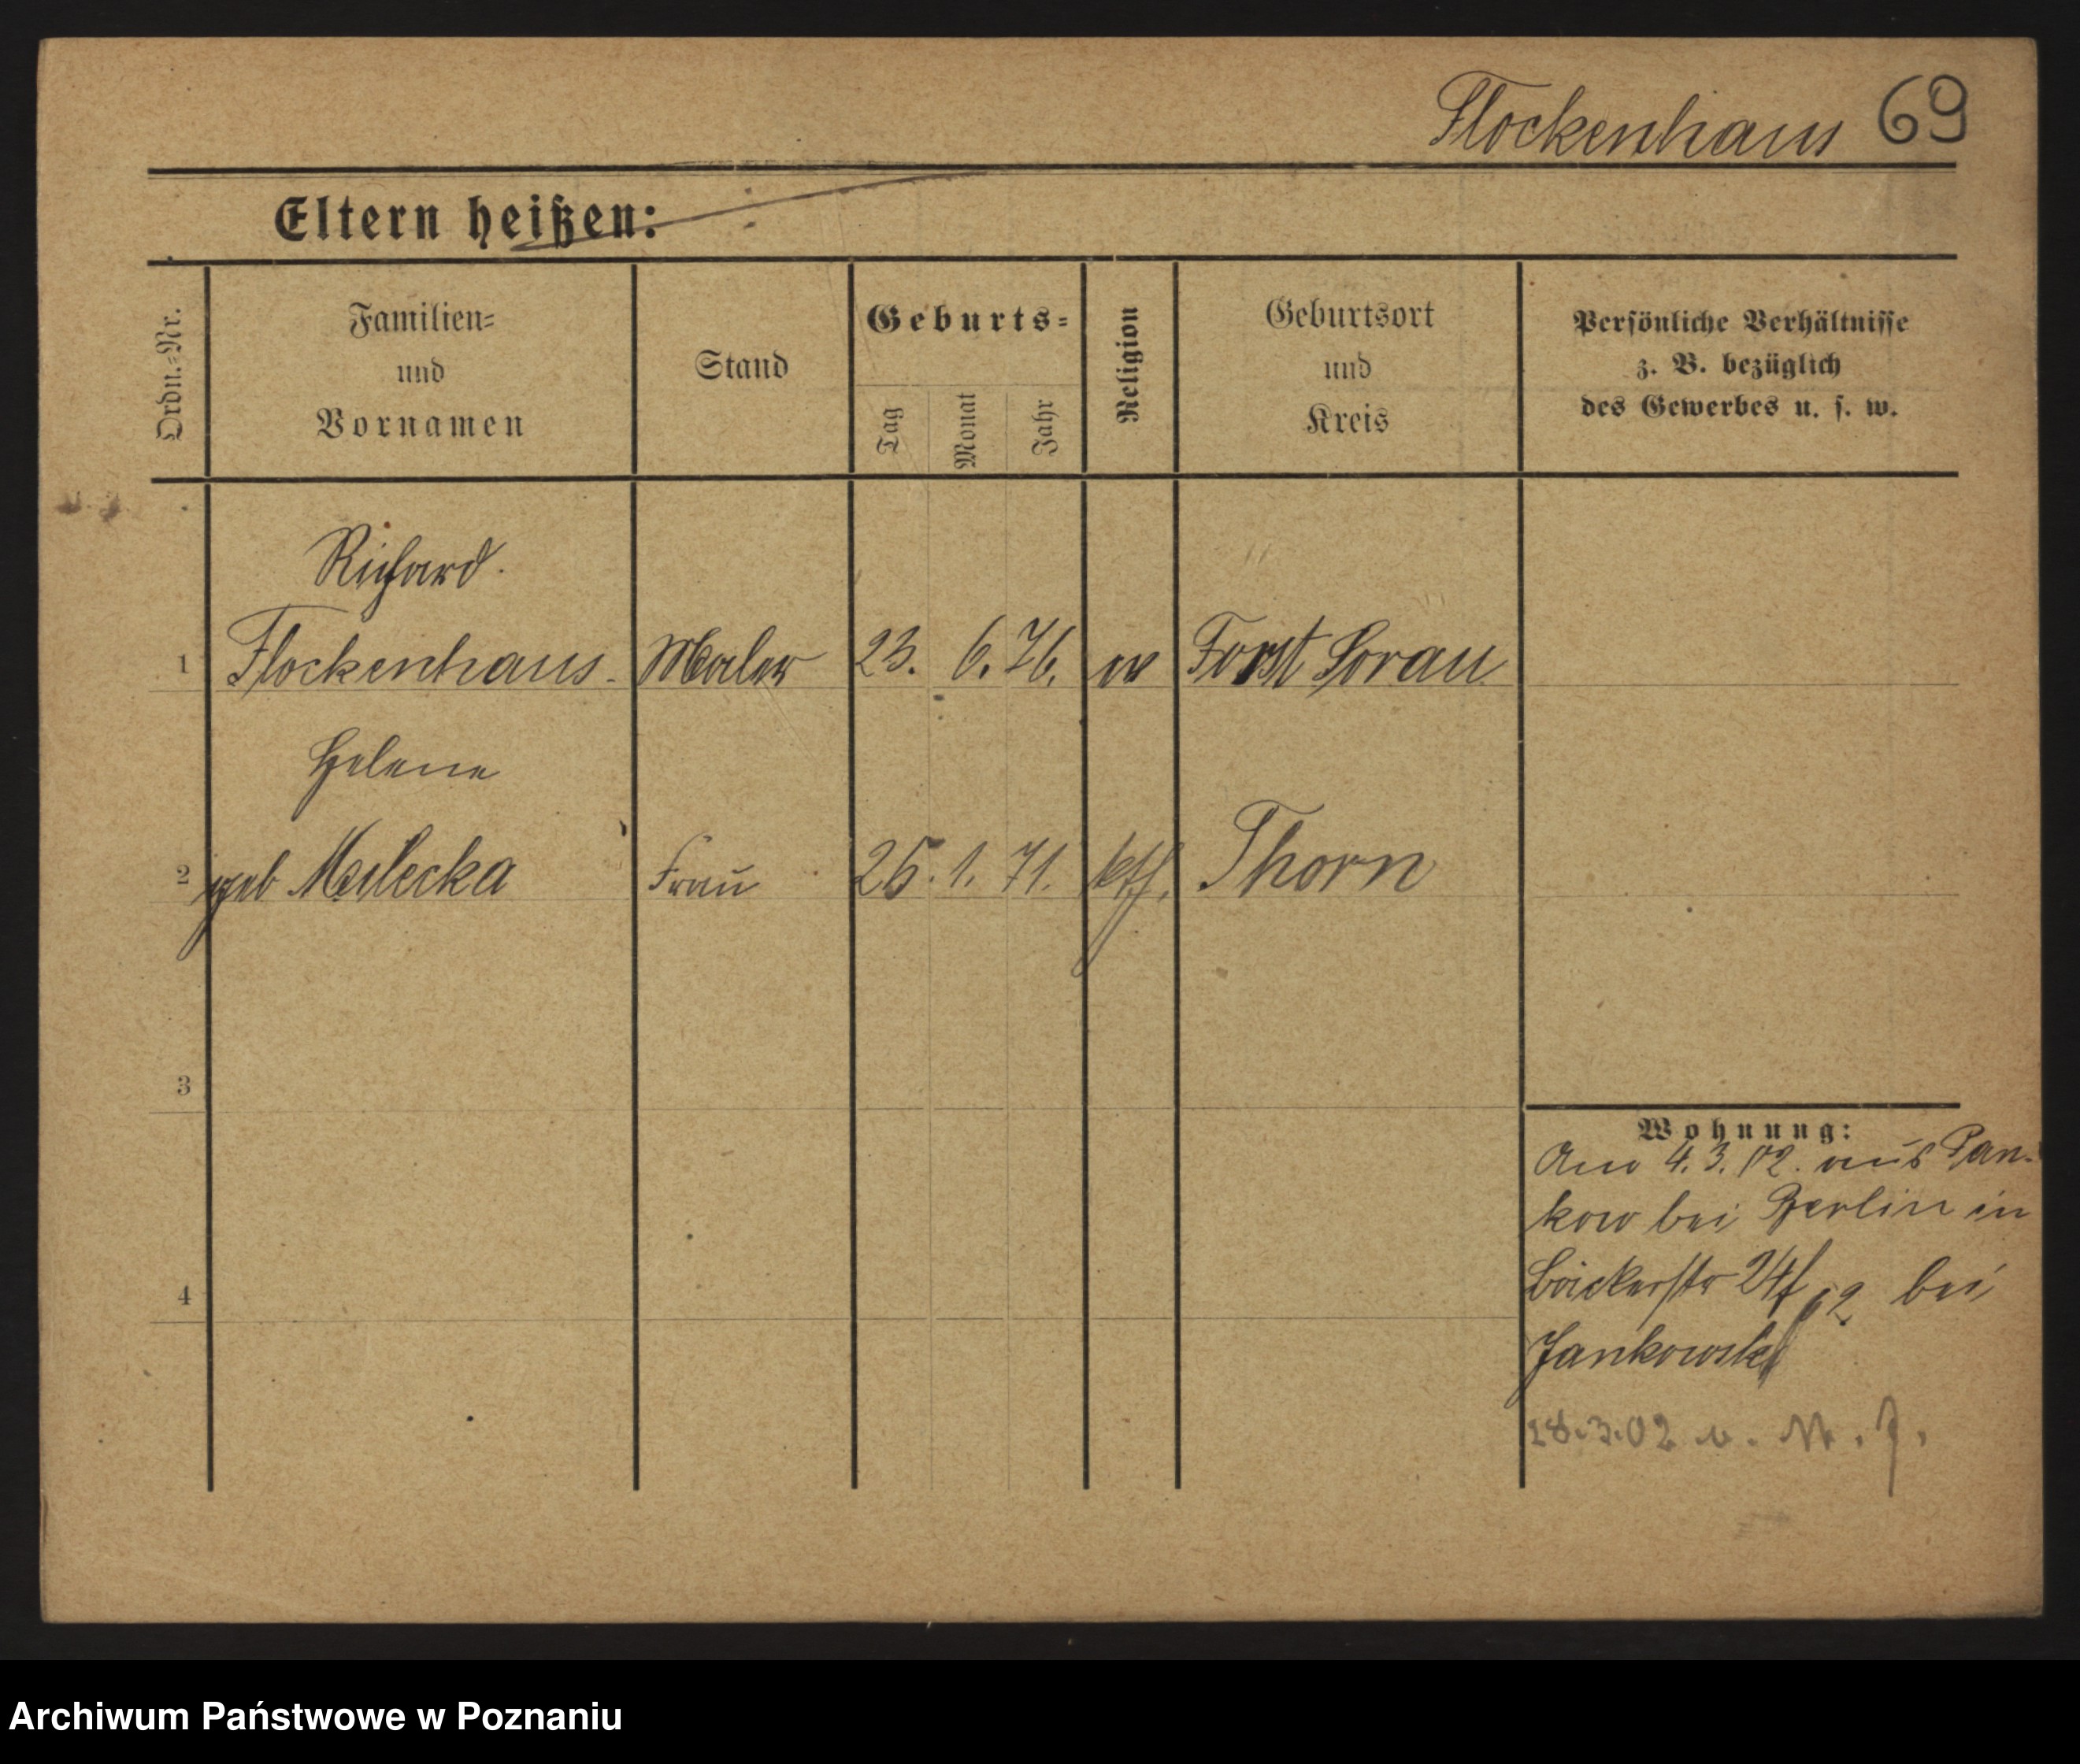 Flockenhaus 69
Eltern heißen:
Ordn.-Nr.
Familien-
und
Vornamen
Stand
Geburts-
Tag
Monat
Jahr
Religion
Geburtsort
und
Kreis
Persönliche Verhältnisse
z. B. bezüglich
des Gewerbes u. s. w.
Richard
1 Flockenhaus. Maler 23. 6. 76. ev Forst Sorau
Helene
2 geb Frau 25. 1. 71. kth. Thorn
3
4
Wohnung:
Am 4. 3. 02. aus Pan-
kow bei Berlin in
bei
Jankowski
28.3.02
Archiwum Państwowe w Poznaniu